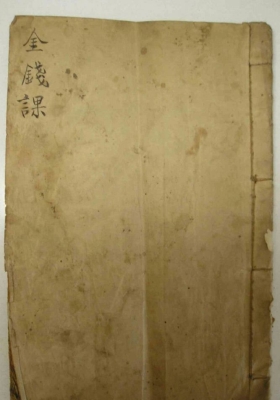 金錢課